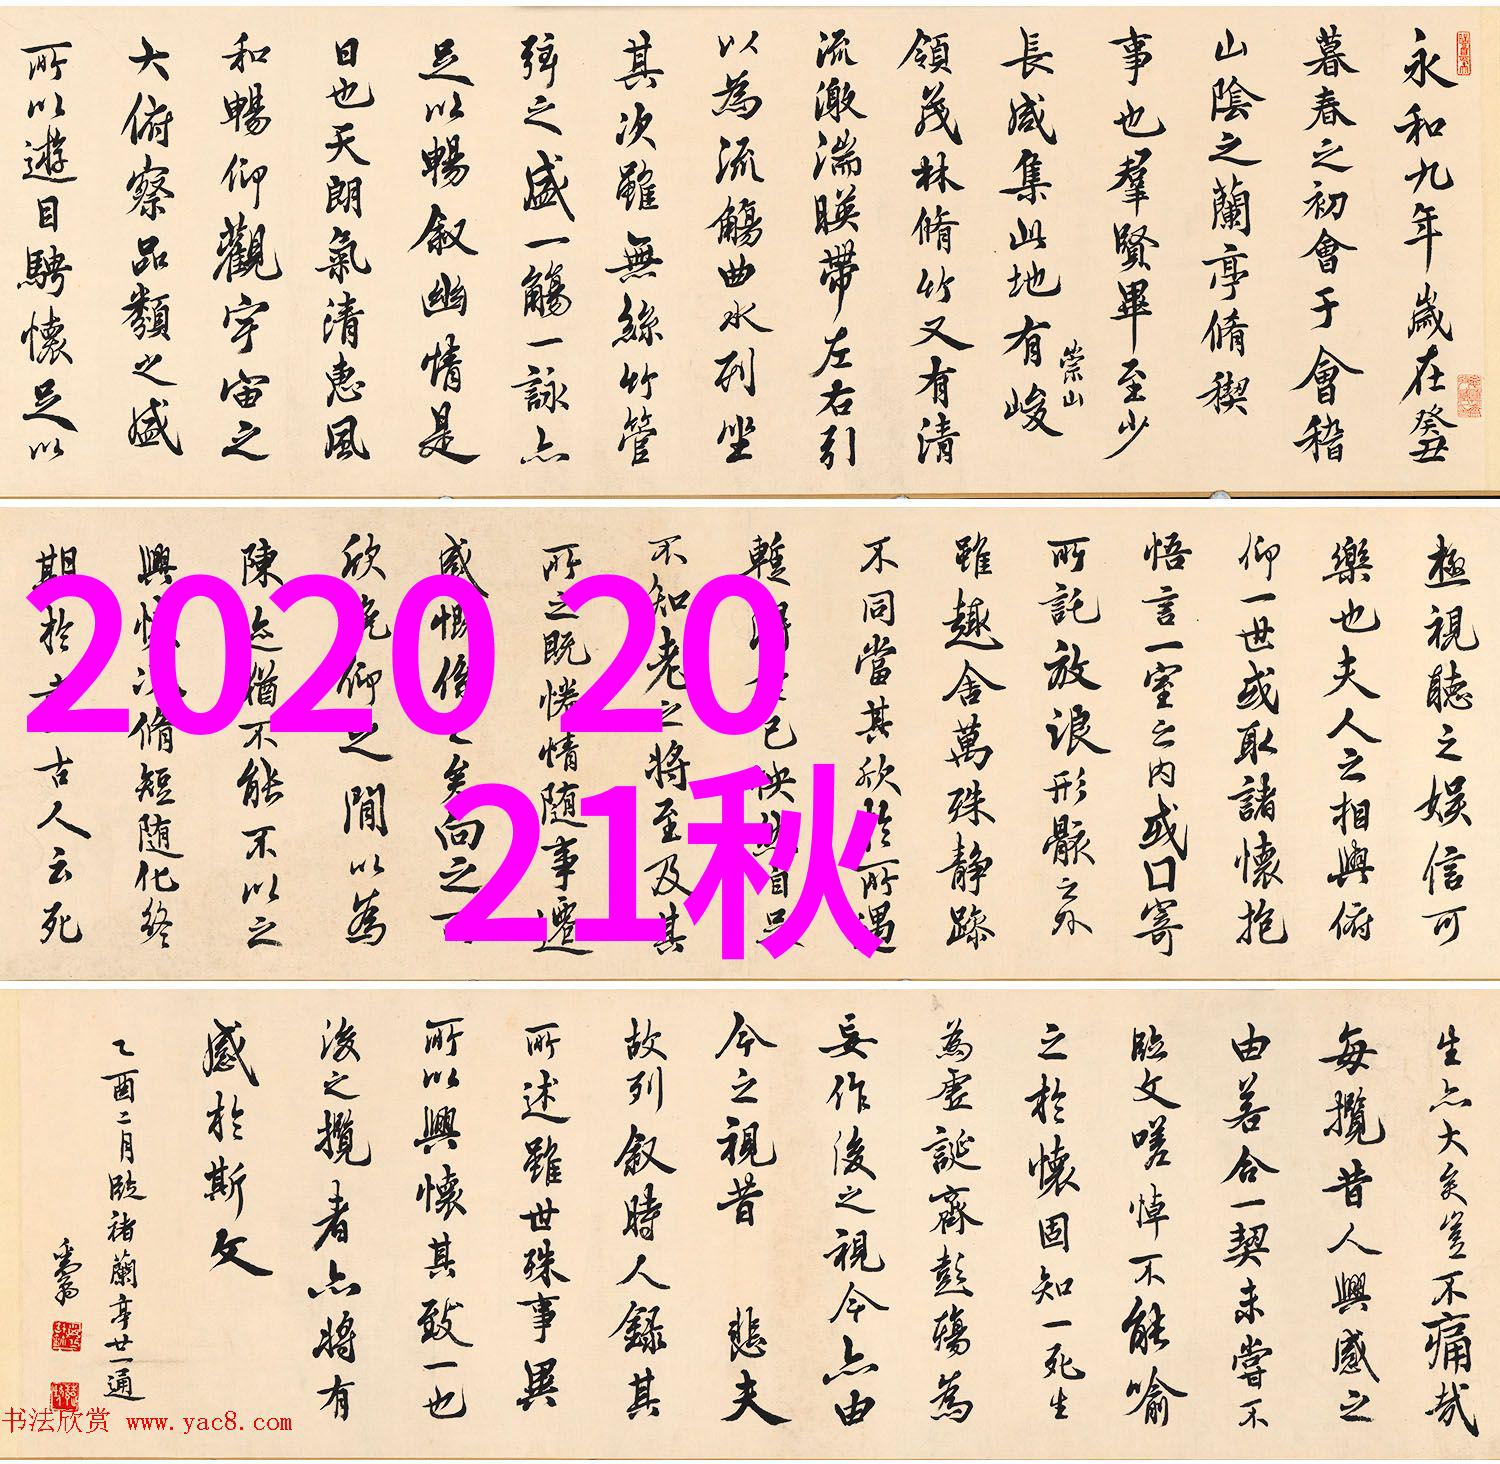 永和九年歲在癸丑
暮春之初會于會稽
山陰之蘭亭脩稧
事也羣賢畢至少
長咸集此地有峻
崇山
領茂林脩竹又有清
流激湍暎帶左右引
以為流觴曲水列坐
其次雖無絲竹管
弦之盛一觴一詠亦
足以暢叙幽情是
日也天朗氣清惠風
和暢仰觀宇宙之
大俯察品類之盛
所以遊目騁懷足以
極視聽之娛信可
樂也夫人之相與俯
仰一世或取諸懷抱
悟言一室之內或口寄
所託放浪形骸之外
雖趣舍萬殊静躁
不同當其欣於所遇
暫得於己怏然自足
不知老之將至及其
所之既惓情随事遷
感慨係之矣向之所
欣俛仰之間以為
陳迹猶不能不以之
興懷況脩短随化終
期於盡古人云死
生亦大矣豈不痛哉
每攬昔人興感之
由若合一契未嘗不
臨文嗟悼不能喻
之於懷固知一死生
為虛誕齊彭殤為
妄作後之視今亦由
今之視昔 悲夫
故列叙時人錄其
所述雖世殊事異
所以興懷其致一也
後之攬者亦將有
感於斯文
乙酉二月臨褚蘭亭廿一通
2020 20
21秋
书法欣赏 www.yac8.com